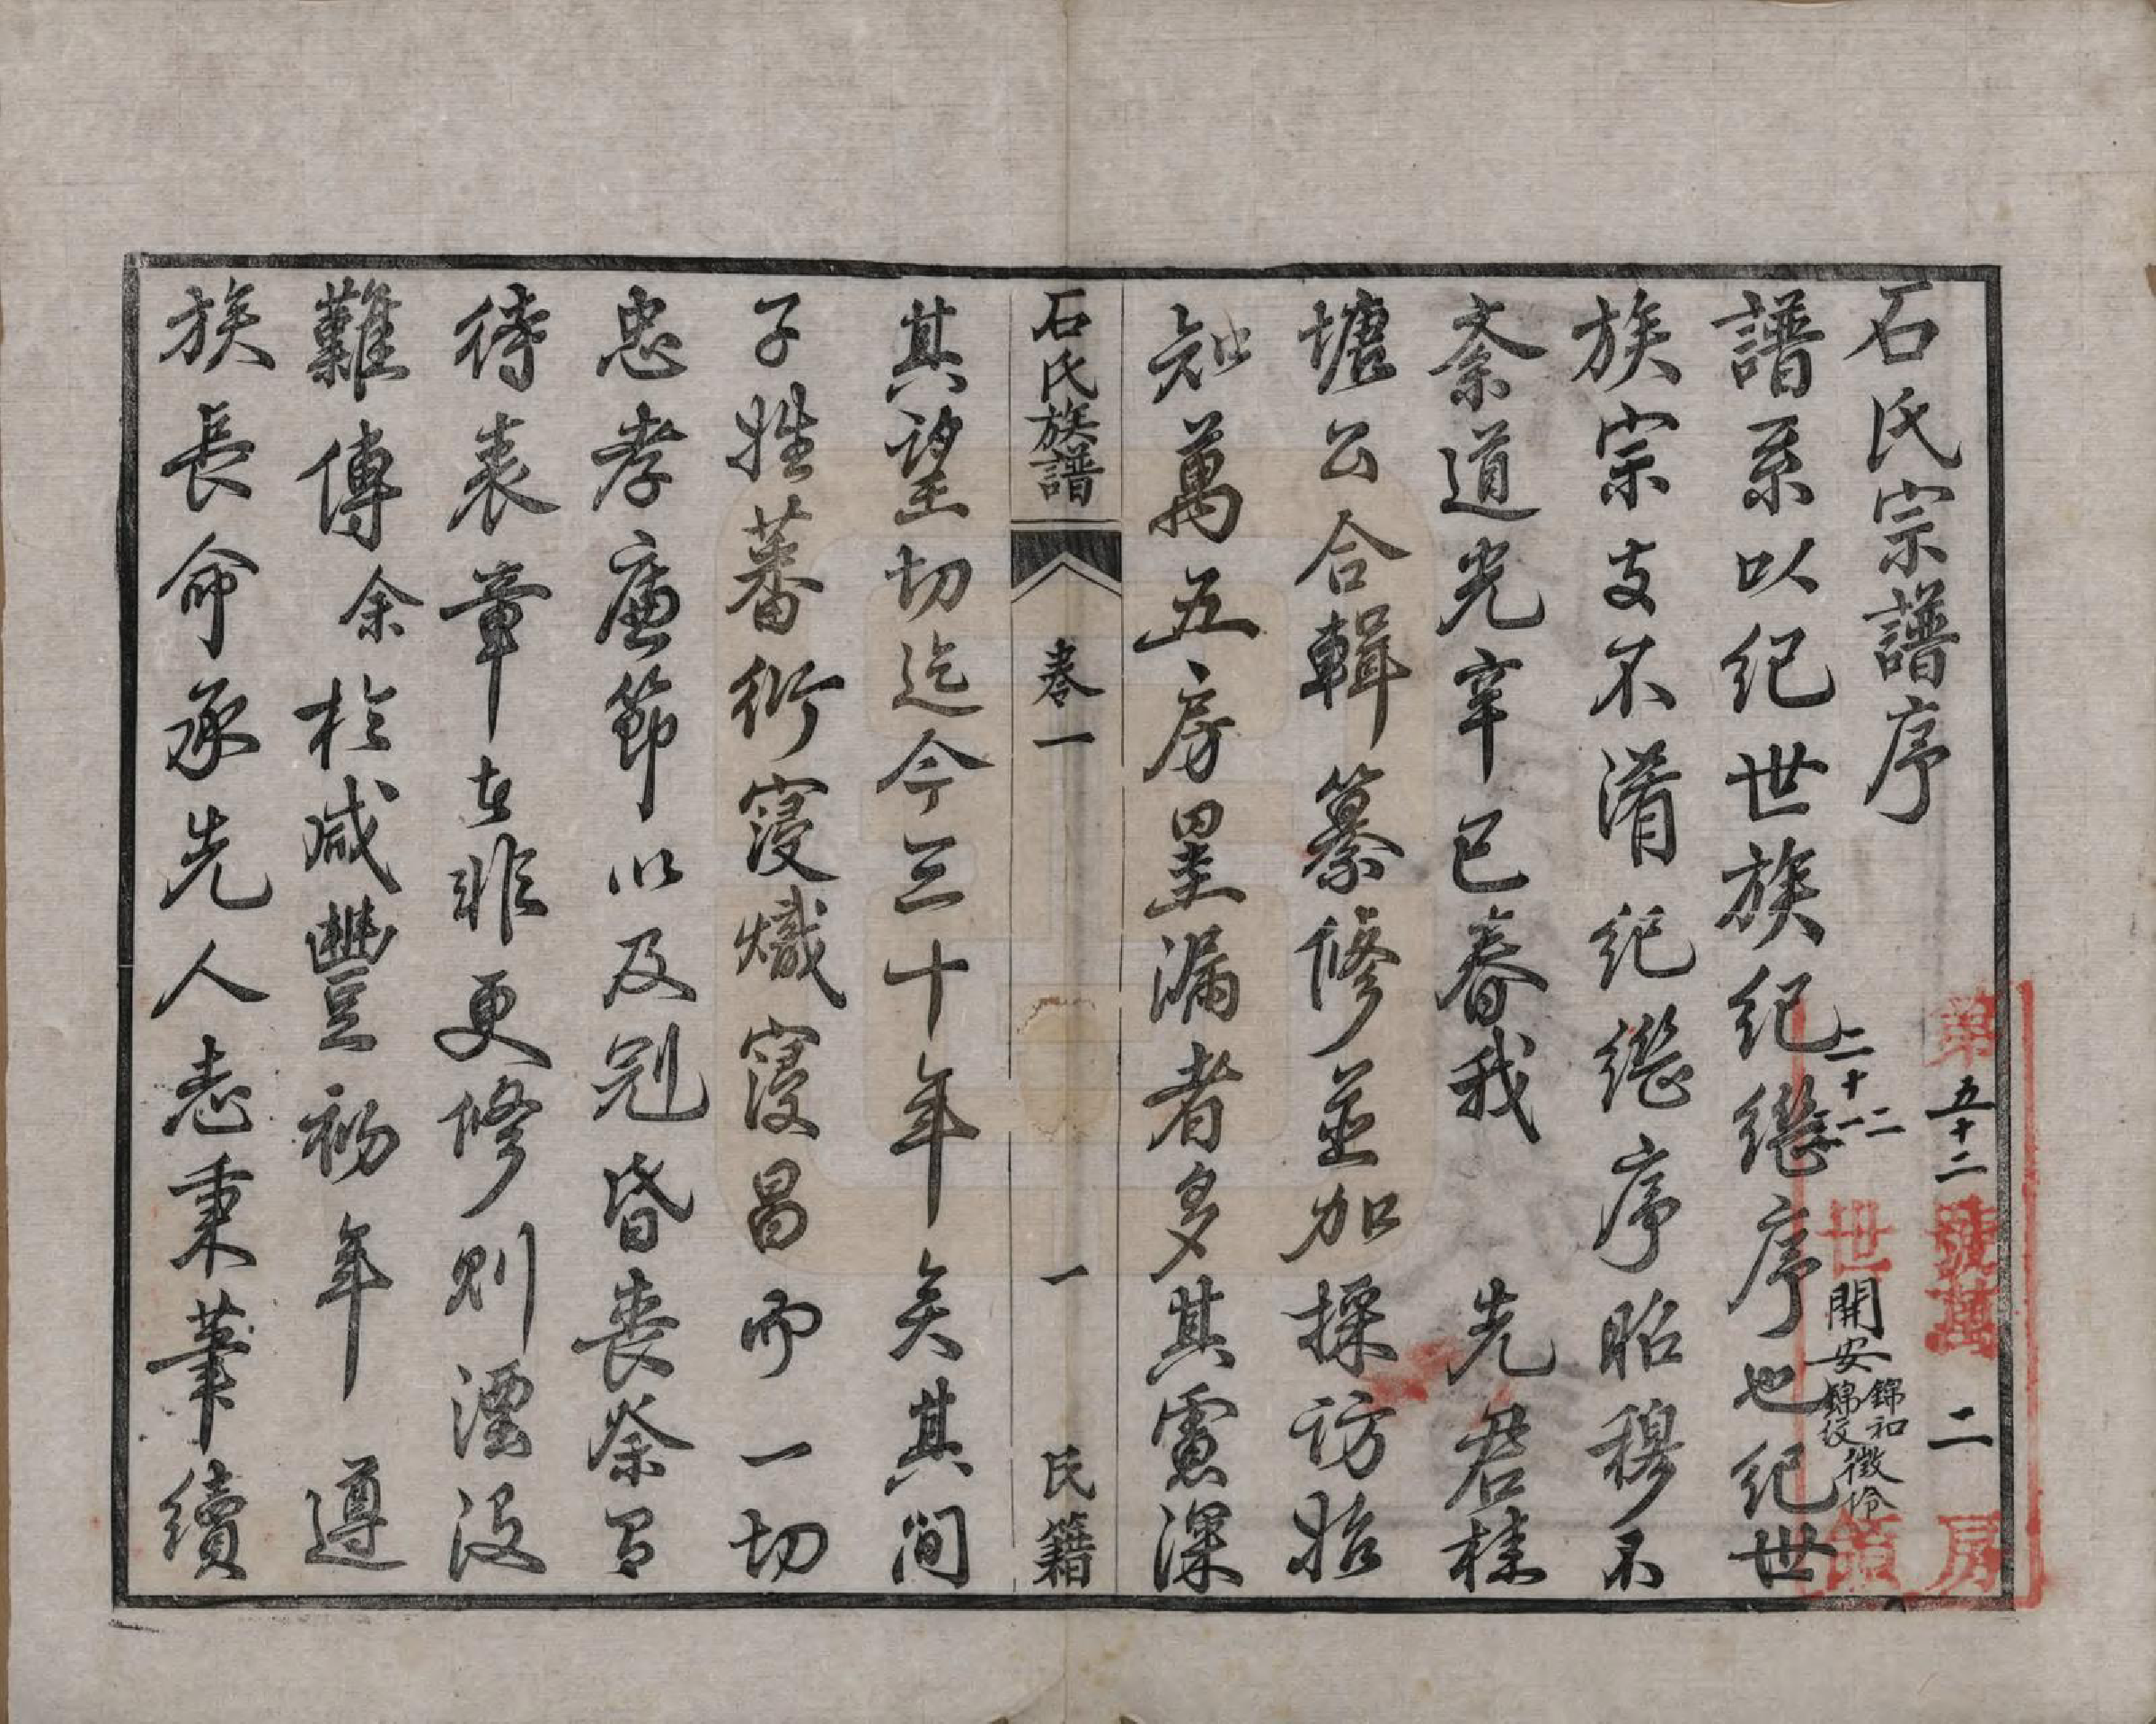 石氏宗譜序
第五十二號萬二房
二十一二世開安錦和錦役徵伶領
譜系以紀世族紀繼序也紀世
族宗支不淆紀繼序昭穆不
紊道光辛巳春我 先君桂
塘公合輯纂修並加採訪始
知萬五房里漏者多其慮深
石氏族譜 卷一 一 民籍
其望切迄今三十年矣其间
子姓蕃衍寖熾寖昌而一切
忠孝廉節以及冠昏喪祭有
待表章者非更修則湮没
難傳余於咸豐初年 遵
族長命承先人志秉筆續